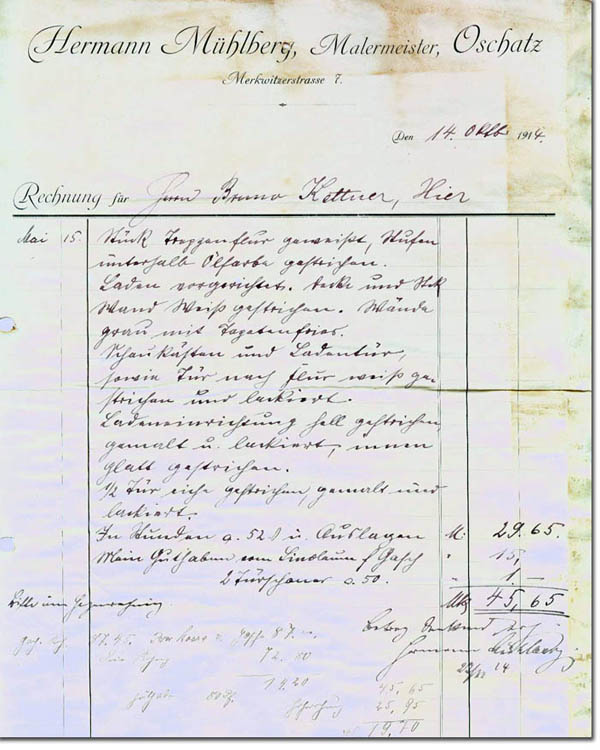 Hermann Mühlberg, Malermeister, Oschatz
Merkwitzerstrasse 7.
Den 14. Oktb 1914.
Rechnung für Herrn Bruno Kettner, Hier
Mai 15. Stück Treppenflur geweißt, Stufen
unterhalb Ölfarbe gestrichen.
Laden vorgerichtet. Decke und Stck
Wand Weiß gestrichen. Wände
grau mit Tapetenfries.
Schaukästen und Ladentür,
sowie Tür nach Flur weiß ge-
strichen und lackiert.
Ladeneinrichtung hell gestrichen,
gemalt u. lackiert, innen
glatt gestrichen.
1/2 Tür eiche gestrichen, gemalt und
lackiert.
In Stunden a. 52 u. Auslagen M. 29.65.
Mein Guthaben vom Linoleum f Gasch " 15,
2 Türschoner a. 50. " 1 —
Mk 45,65
Bitte um Gegenrechnung.
Betrag dankend
Hermann Mühlberg
14
87.45
72.
14.20
45,65
25,95
19,70